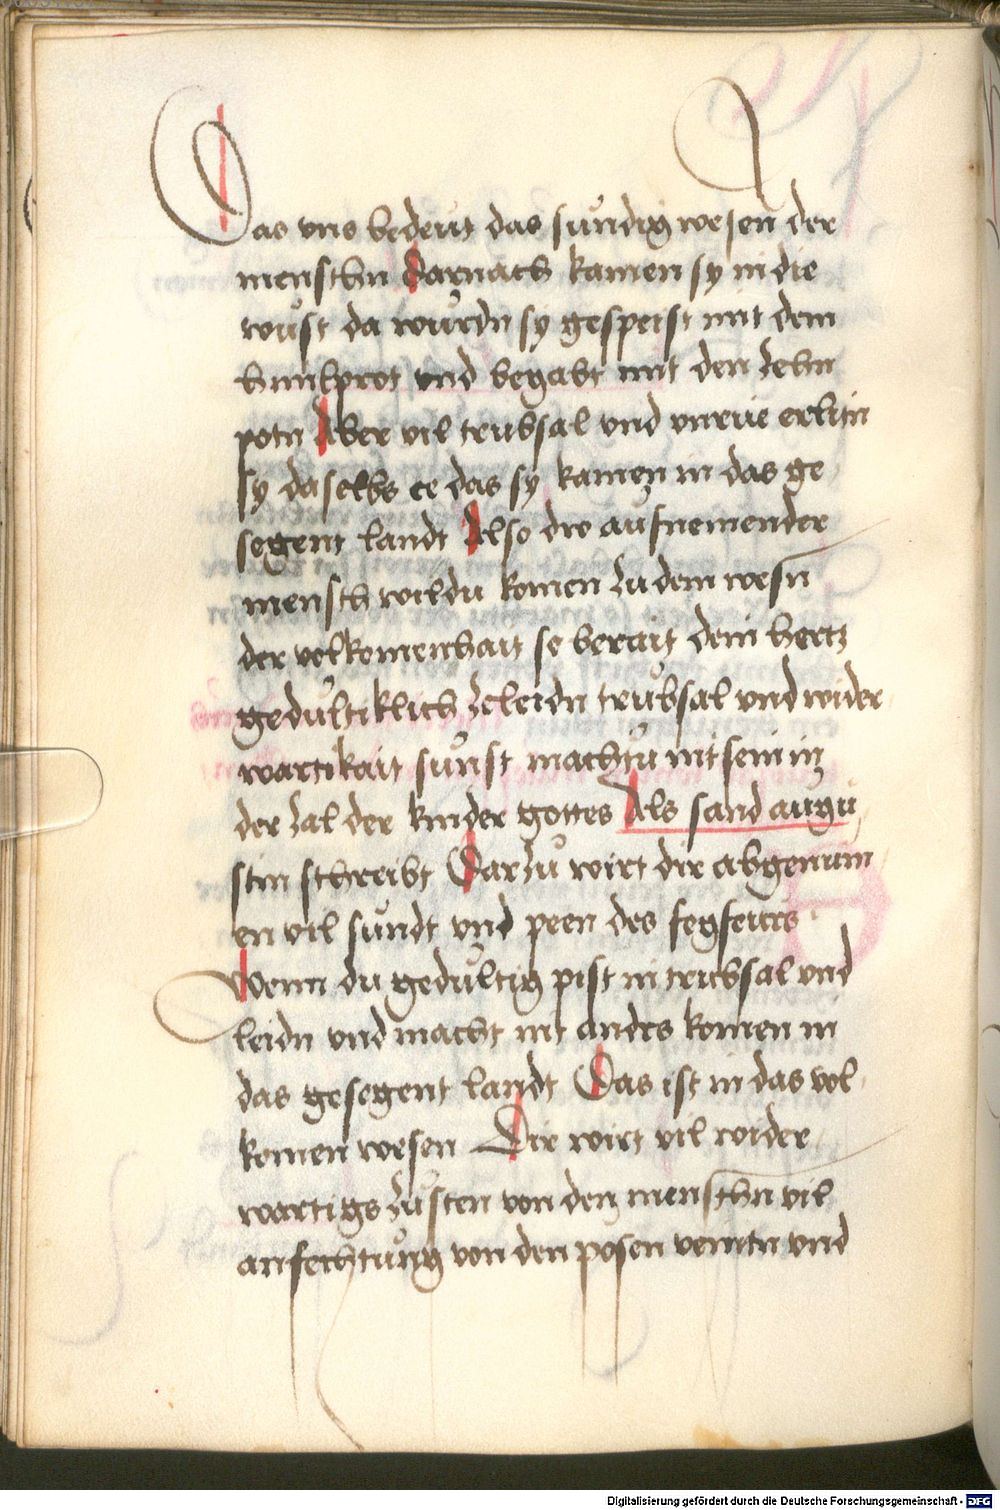 Das vns bedeut das sundig wesen der
menschn Darnach kamen sy in die
wust da wurdn sy gespeist mit dem
himlprot vnd begabt mit den zehn
potn Aber vil trubsal vnd vnrue erlitn
sy daselbs ee das sy kamen in das ge
segent landt Also dw aufnemender
mensch wildu komen zu dem wesn
der volkomenhait so berait dein hertz
gedultiklich zeleidn trubsal vnd wider
wartikait sunst machtu nit sein in
der zal der kinder gottes Als sand augu
stin schreibt Darzu wirt dir abgenum
en vil sundt vnd peen des fegfeurs
Wenn du gedultig pist in trubsal vnd
leidn vnd macht nit andrs komen in
das gesegent landt Das ist in das vol
komen wesen Dir wirt vil wider
wartigs zusten von den menschn vil
anfechtung von den posen veintn vnd
Digitalisierung gefördert durch die Deutsche Forschungsgemeinschaft - DFG